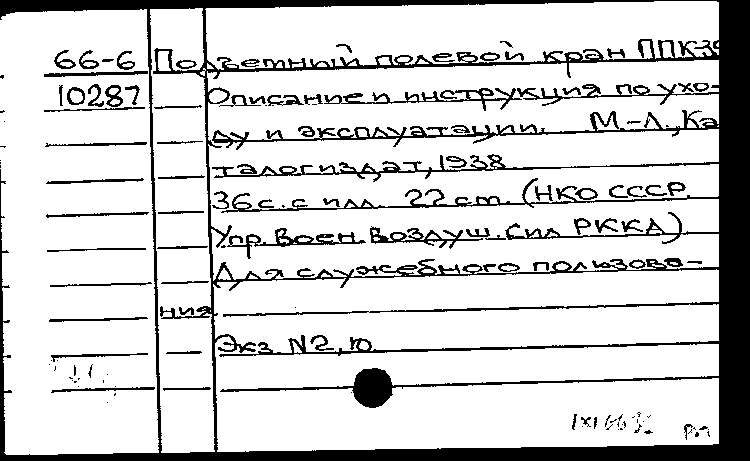 66-6 Подъемный полевой кран ППК-39
10287 Описание и инструкция по ухо-
ду и эксплуатации. М.-Л., Ка
талогиздат, 1938
36 с. с илл. 22 см. (НКО СССР.
Упр. Воен. Воздуш. Сил РККА)
Для служебного пользова-
ния
Экз. N2, 10